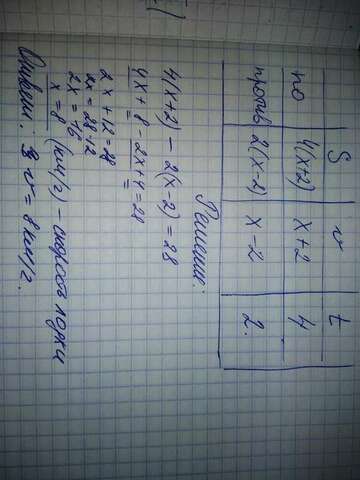 S v t
по 4(x+2) x+2 4
против 2(x-2) x-2 2.
Решение:
4(x+2) - 2(x-2) = 28
4x+8 - 2x+4 = 28
2x + 12 = 28
2x = 28-12
2x = 16
x = 8 (км/г) - скорость лодки
Ответ: v = 8 км/г.